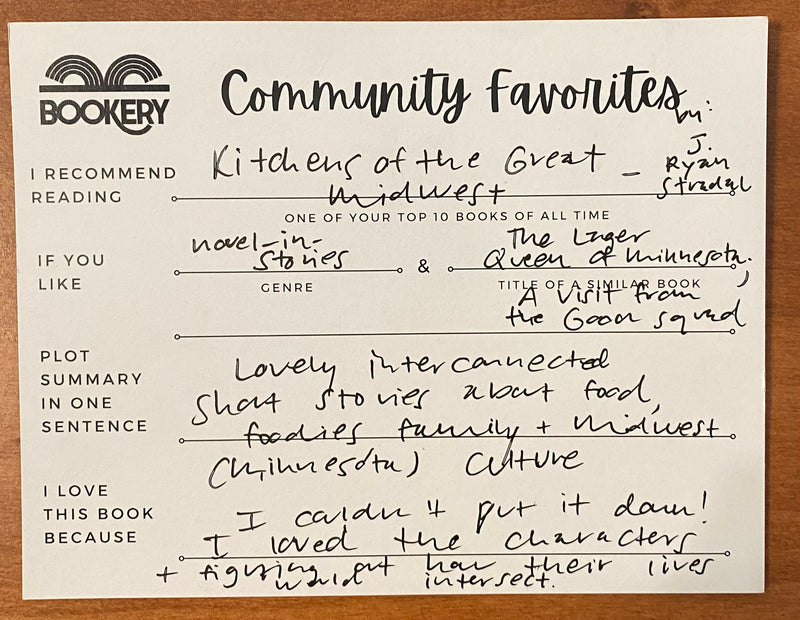 BOOKERY
Community Favorites
I RECOMMEND
READING
Kitchens of the Great
Midwest
- by:
J.
Ryan
Stradal
ONE OF YOUR TOP 10 BOOKS OF ALL TIME
IF YOU
LIKE
novel-in-
stories
GENRE
&
The Lager
Queen of Minnesota,
TITLE OF A SIMILAR BOOK
A Visit from
the Goon Squad
PLOT
SUMMARY
IN ONE
SENTENCE
Lovely interconnected
short stories about food,
foodies family + Midwest
(Minnesota) culture
I LOVE
THIS BOOK
BECAUSE
I couldn't put it down!
I loved the characters
+ figuring out how their lives
would intersect.